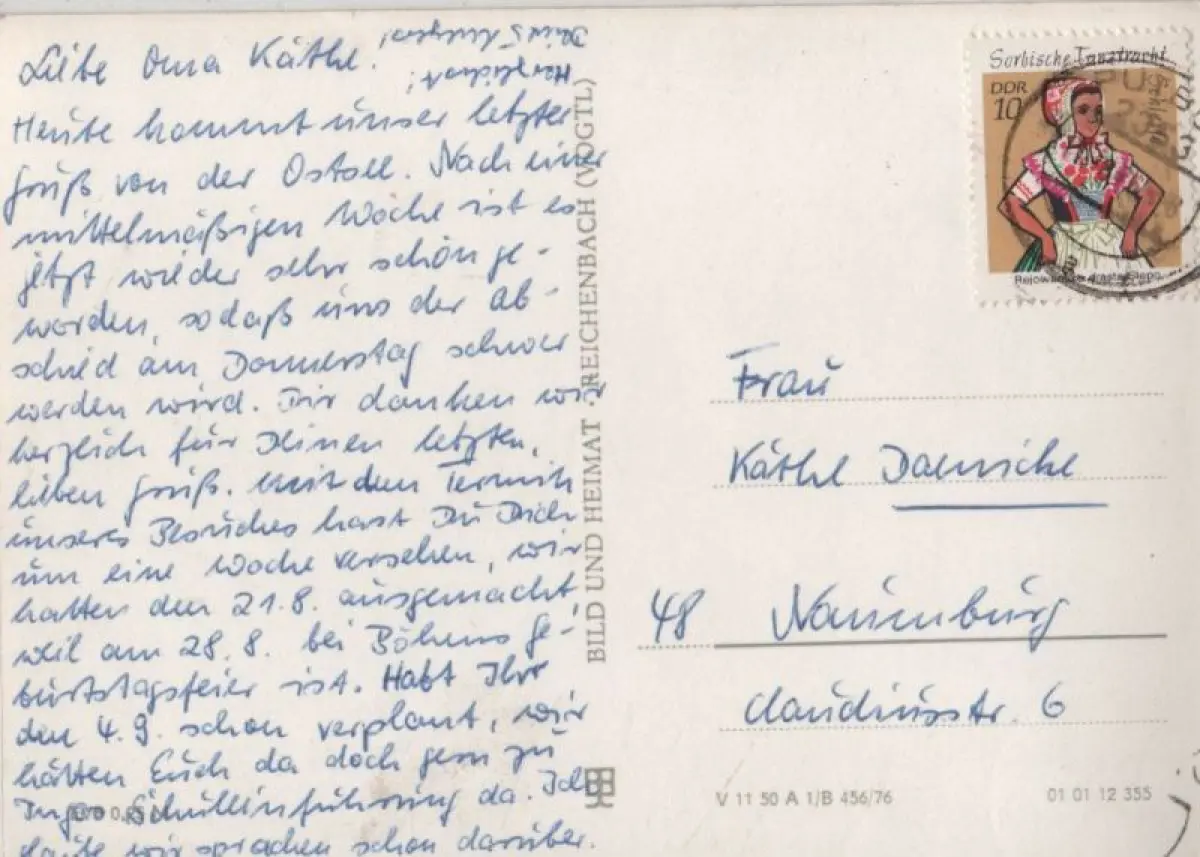 Liebe Oma Käthe!
Heute kommt unser letzter
Gruß von der Ostsee. Nach einer
mittelmäßigen Woche ist es
jetzt wieder sehr schön ge-
worden, sodaß uns der Ab-
schied am Donnerstag schwer
werden wird. Dir danken wir
herzlich für Deinen letzten,
lieben Gruß. Mit dem Termin
unseres Besuches hast Du Dich
um eine Woche versehen, wir
hatten den 21.8. ausgemacht,
weil am 28.8. bei Böhms Ge-
burtstagsfeier ist. Habt Ihr
den 4.9. schon verplant, wir
hätten Euch da doch gern zu
Ingo Schuleinführung da. Ich
glaube wir sprachen schon darüber.
Herzlichst
BILD UND HEIMAT · REICHENBACH (VOGTL)
Sorbische Tanztracht
DDR
10
Frau
Käthe Daenicke
48 Naumburg
Claudiusstr. 6
V 11 50 A 1/B 456/76
01 01 12 355